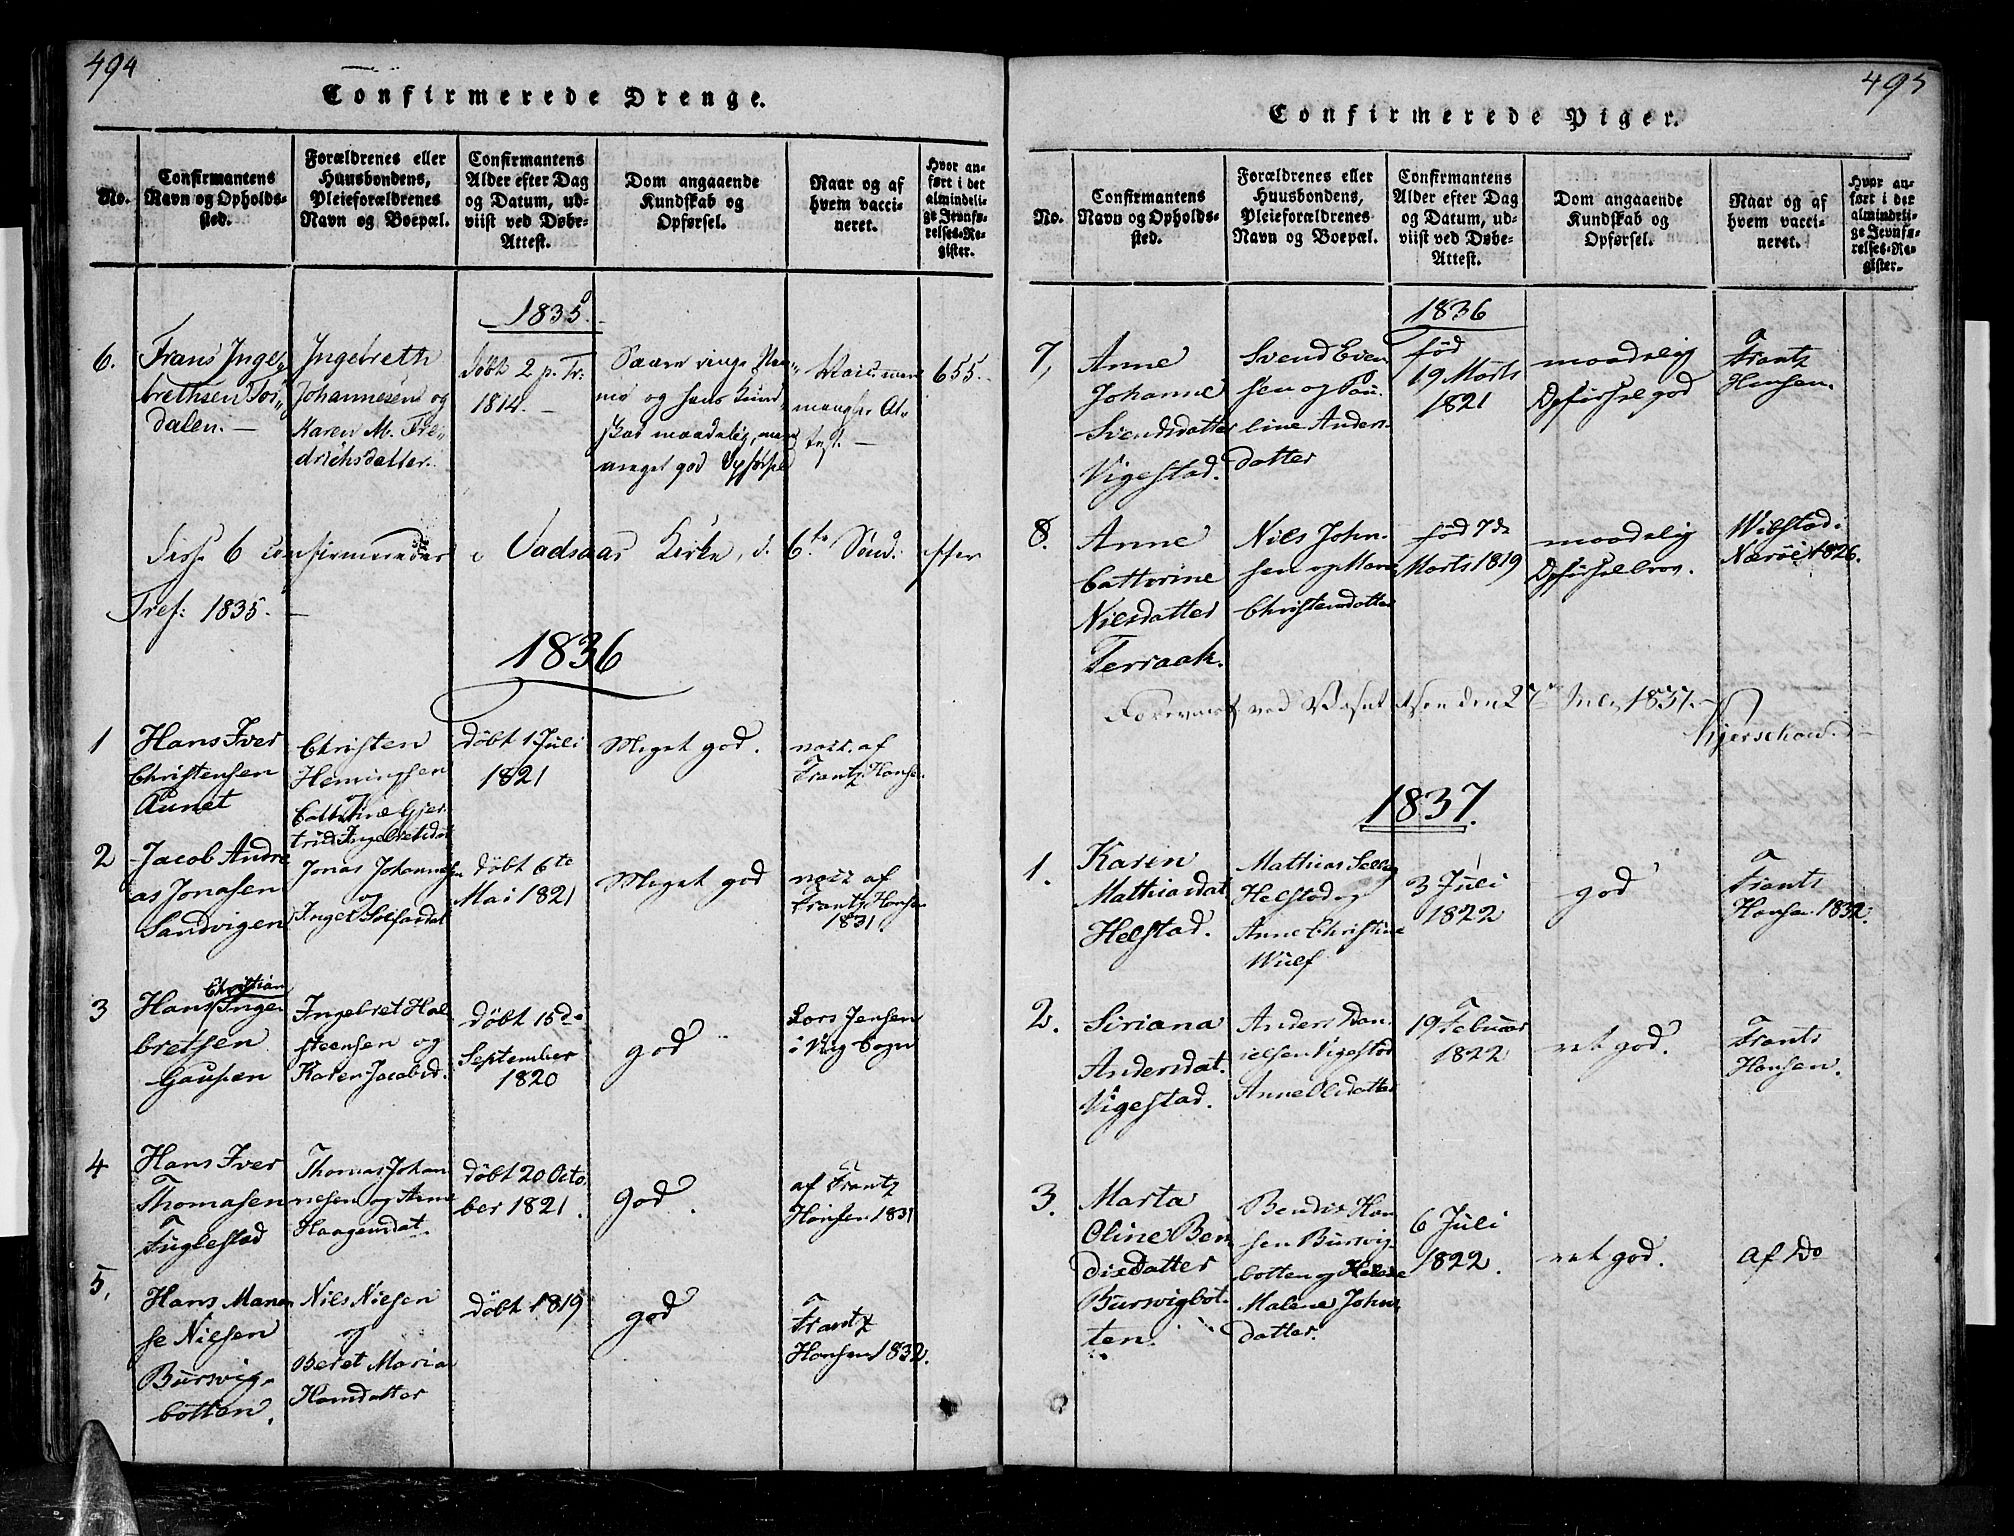 494
Confirmerede Drenge.
No.
Confirmantens
Navn og Opholds-
sted.
Forældrenes eller
Huusbondens,
Pleieforældrenes
Navn og Boepæl.
Confirmantens
Alder efter Dag
og Datum, ud-
viist ved Døbe-
Attest.
Dom angaaende
Kundskab og
Opførsel.
Naar og af
hvem vacci-
neret.
Hvor an-
ført i det
almindeli-
ge Jevnfø-
relses-Re-
gister.
1835
6.
Frans Inge-
brethsen Tos-
dalen.
Ingebreth
Johannesen og
Karen M. Fre-
drichsdatter.
Døbt 2 p. Tr:
1814.
og hans Kund-
skab maadelig, men
meget god Opførsel
655.
Disse 6 confirmerede i Vadsaas Kirke, d. 6te Sønd: efter
Tref: 1835.
1836
1
Hans Iver
Christensen
Aunet
Christen
Hemingsen
og
Cathrine Gjer-
trud Ingebretsdat
Døbt 1 Juli
1821
Meget god.
vacc. af
Frantz Hansen
2
Jacob Andre
as Jonasen
Sandvigen
Jonas Johannesen
og
Døbt 6te
Mai 1821
Meget god
vacc af
Frantz Hansen
1831
3
Christian
Hans Inge
bretsen
Gaupen
Ingebret Hal
steensen og
Karen Jacobsd.
Døbt 15de
September
1820
god
Lars Jensen
i Vig Sogn
4
Hans Iver
Thomasen
Fuglestad
Thomas Johan
nesen og Anne
Haagendat.
Døbt 20 Octo
ber 1821.
god.
af Frantz
Hansen 1831
5,
Hans Man
se Nielsen
Bursvig-
botten.
Nils Nielsen
og
Beret Maria
Hansdatter
Døbt 1819
god
Frantz
Hansen 1832.
495
Confirmerede Piger.
No.
Confirmantens
Navn og Opholds-
sted.
Forældrenes eller
Huusbondens,
Pleieforældrenes
Navn og Boepæl.
Confirmantens
Alder efter Dag
og Datum, ud-
viist ved Døbe-
Attest.
Dom angaaende
Kundskab og
Opførsel.
Naar og af
hvem vacci-
neret.
Hvor an-
ført i det
almindeli-
ge Jevnfø-
relses-Re-
gister.
1836
7,
Anne
Johanne
Svendsdatter
Vigestad.
Svend Even
sen og Pau
line Anders
datter
fød
19 Marts
1821
maadelig
Opførsel god
Frantz
Hansen.
8.
Anne
Cathrine
Nilsdatter
Terraak.
Nils John
sen og Maren
Christensdatter
fød 7de
Marts 1819
maadelig
Opførsel brav.
Wibstad.
Nærøe 1826.
Forevart ved den 27 1837.
1837.
1.
Karen
Mathiasdat
Helstad.
Mathias
Helstad og
Anne Christine
Wulf
3 Juli
1822
god
Frants
Hansen 1832.
2.
Siriana
Andersdat.
Vigestad.
Anders Dan
ielsen Vigestad
Anne Olsdatter
19 Februar
1822
ret god.
Frants
Hansen.
3.
Marta
Oline Ben
dixdatter
Bursvigbot-
ten.
Bendix Han
sen Bursvig
botten og
Malene Johns
datter.
6 Juli
1822.
ret god.
af Do